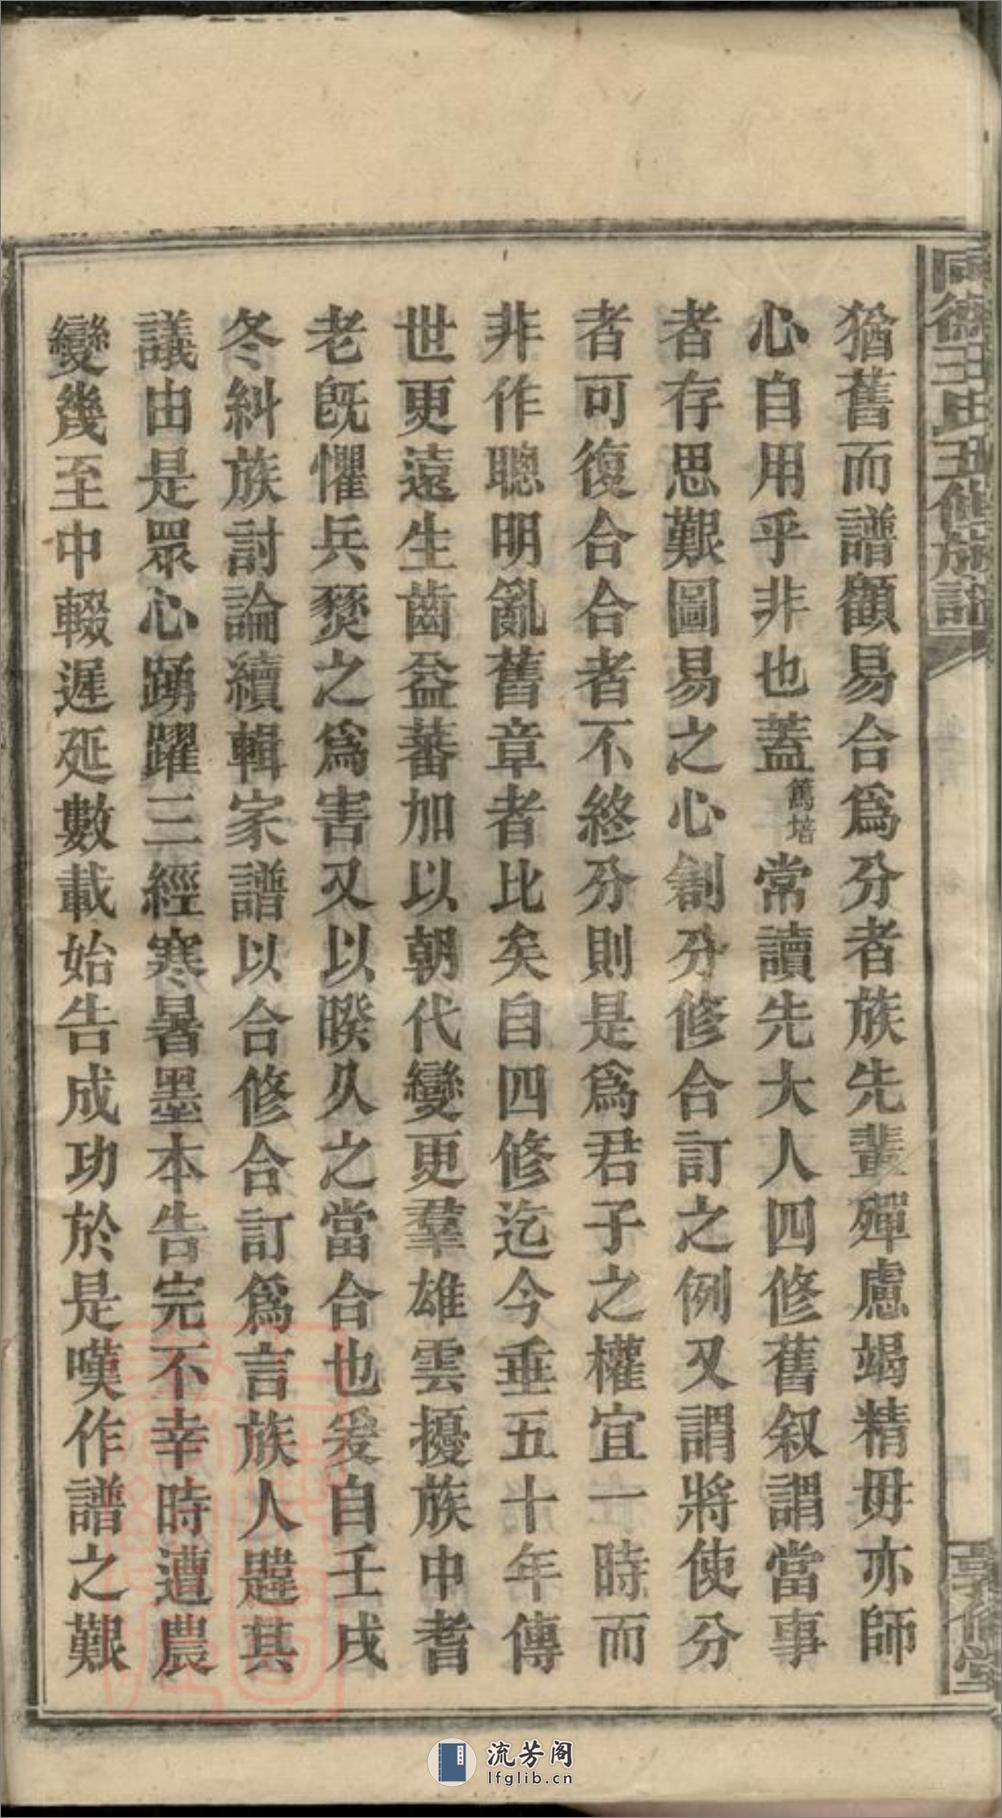 猶舊而譜顧易合爲分者族先輩殫慮竭精毋亦師
心自用乎非也蓋篤培常讀先大人四修舊叙謂當事
者存思艱圖易之心創分修合訂之例又謂將使分
者可復合合者不終分則是爲君子之權宜一時而
非作聰明亂舊章者比矣自四修迄今垂五十年傳
世更遠生齒益蕃加以朝代變更羣雄雲擾族中耆
老旣懼兵燹之爲害又以暌久之當合也爰自壬戌
冬糾族討論續輯家譜以合修合訂爲言族人韙其
議由是眾心踴躍三經寒暑墨本告完不幸時遭農
變幾至中輟遲延數載始告成功於是嘆作譜之艱
德王氏五修族譜
敦倫堂
流芳阁
lfglib.cn